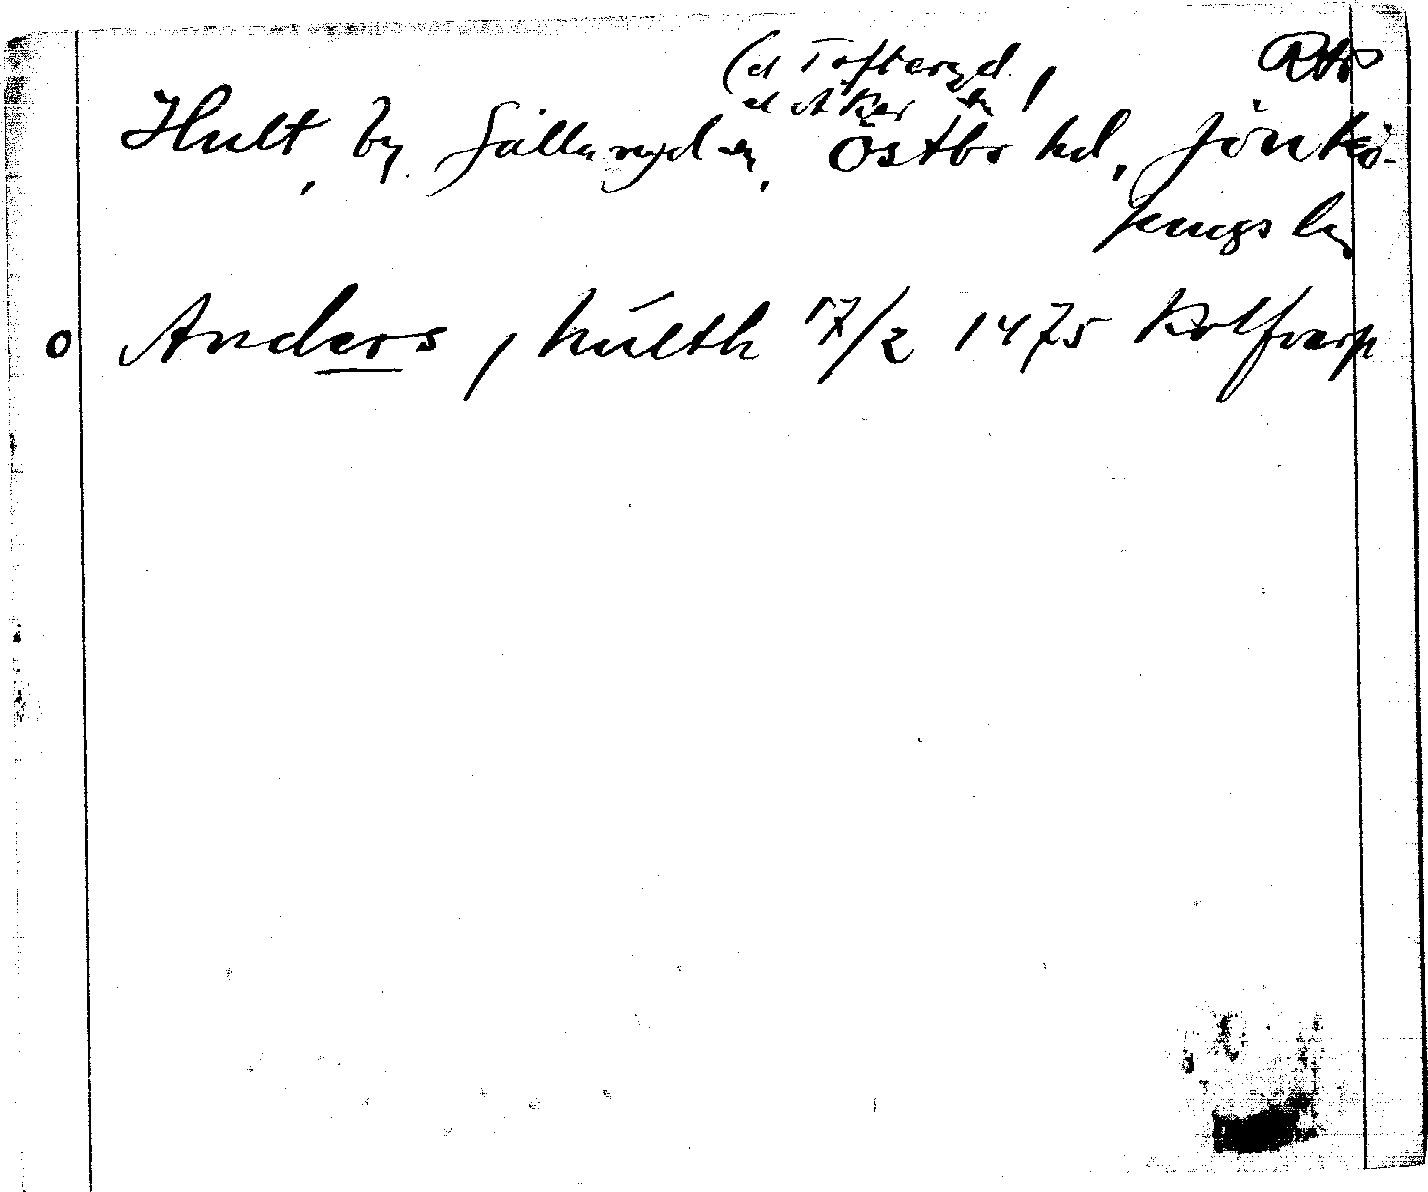 (el Tofteryd
el Åker sn)
Hult, by. Fålleryd sn, Östbo hd, Jönkö-
pings län
o Anders, hulth 17/2 1475